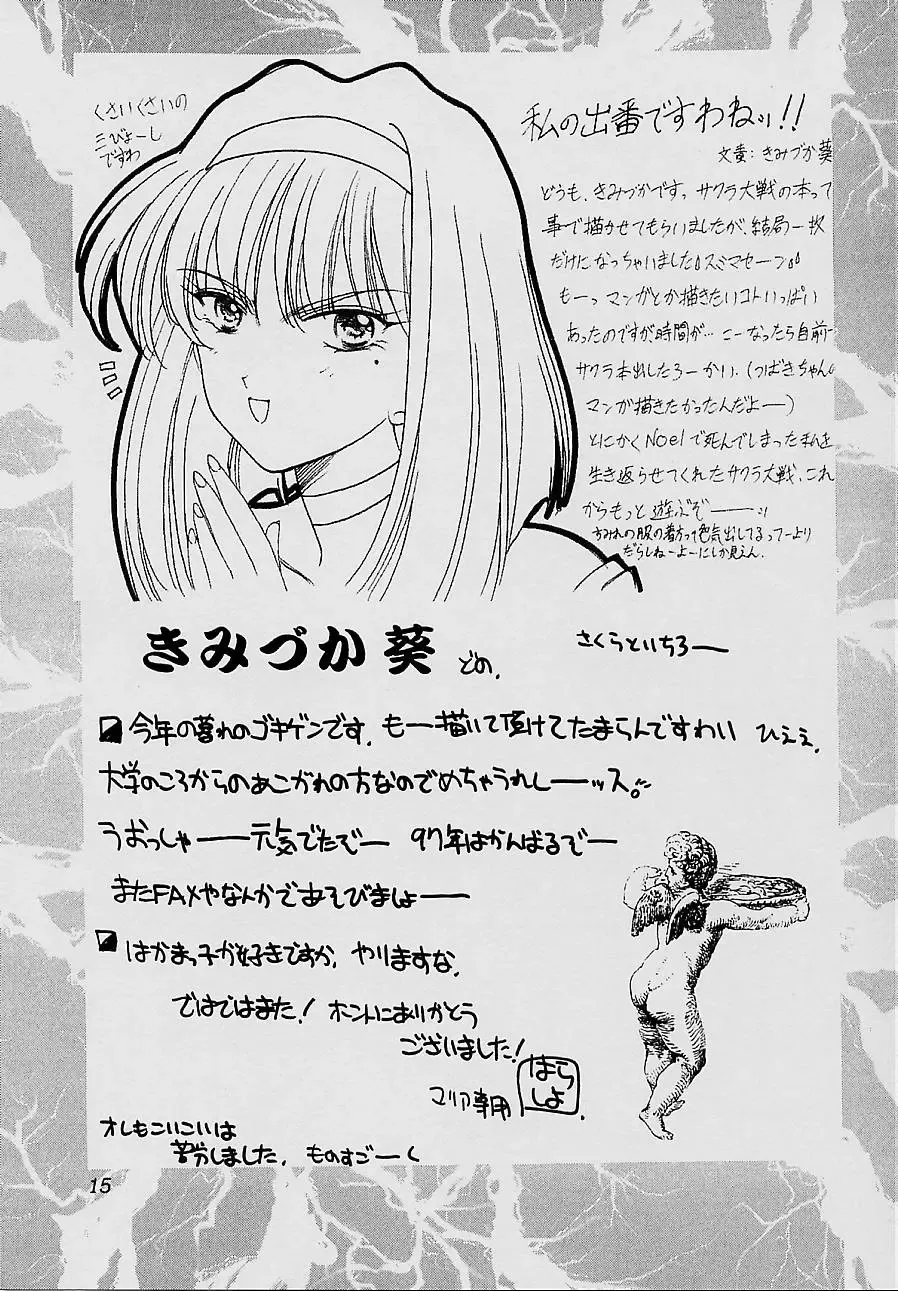 くさいくさいの
三びょーし
ですわ
私の出番ですわねッ!!
文責:きみづか葵
どうも、きみづかです。サクラ大戦の本って
事で描かせてもらいましたが、結局一枚
だけになっちゃいました。スミマセーン。
もーっマンガとか描きたいコトいっぱい
あったのですが、時間が… こーなったら自前で
サクラ本出したろーかい、(つばきちゃん
マンガ描きたかったんだよー)
とにかくNoelで死んでしまった私を
生き返らせてくれたサクラ大戦、これ
からもっと遊ぶぞーーッ
すみれの服の着方って色気出してるってーより
だらしねーよーにしか見えん.
きみづか 葵 どの.
さくらといちろー
今年の暮れのゴキゲンです。もー描いて頂けてたまらんですわい ひええ.
大学のころからのあこがれの方なのでめちゃうれしーーッス。
うおっしゃーー元気でたぞー 97年はがんばるぞー
またFAXやなんかであそびましょーー
はかまっ子が好きですか. やりますな.
ではではまた! ホントにありがとう
ございました!
マリア専用 はらしょ.
オレもこいこいは
苦労しました. ものすごーく
15